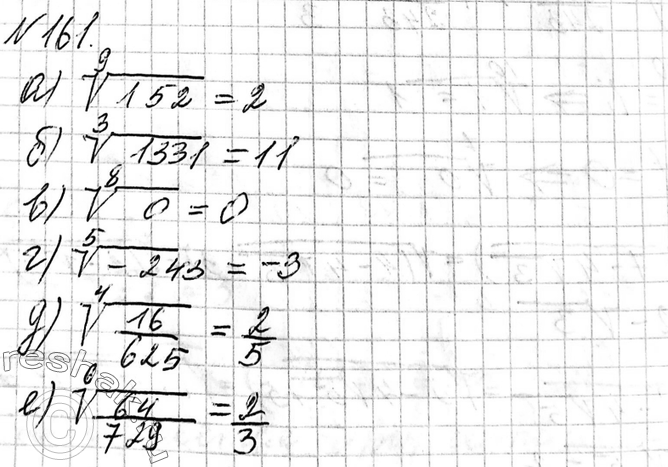 № 161.
а) ⁹√152 = 2
б) ³√1331 = 11
в) ⁸√0 = 0
г) ⁵√-243 = -3
д) ⁴√16/625 = 2/5
е) ⁶√64/729 = 2/3
reshak.ru